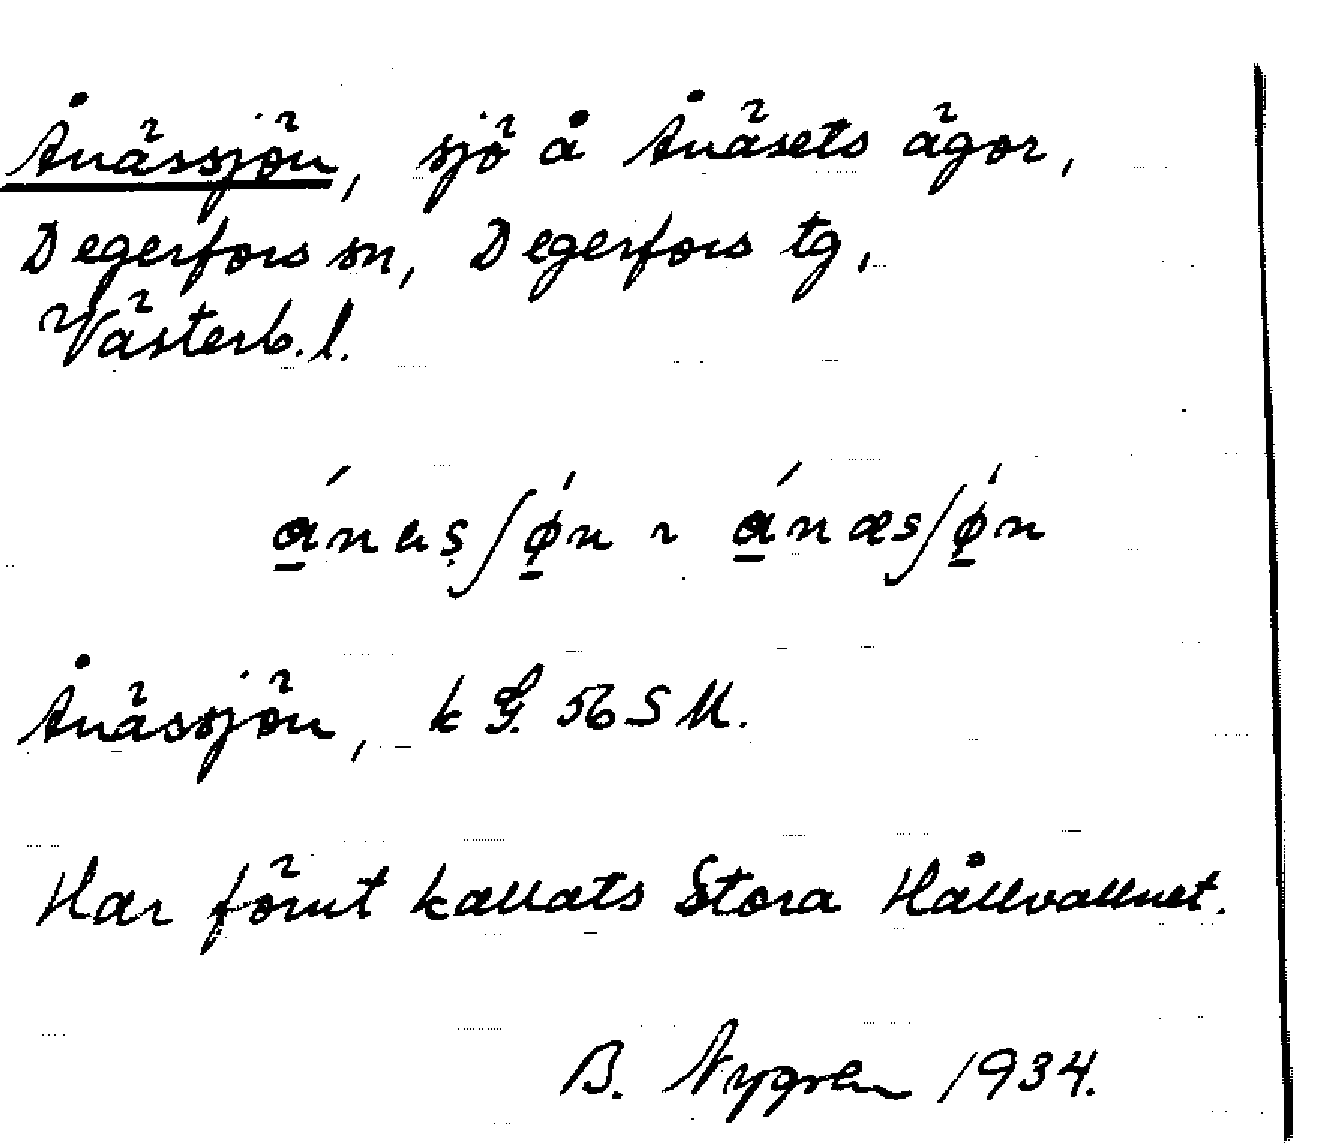 Ånässjön, sjö å Ånäsets ägor,
Degerfors sn, Degerfors tg,
Västerb. l.
Ånässjön, k G. 56 S M.
Har förut kallats Stora Hållvattnet.
B. Nygren 1934.